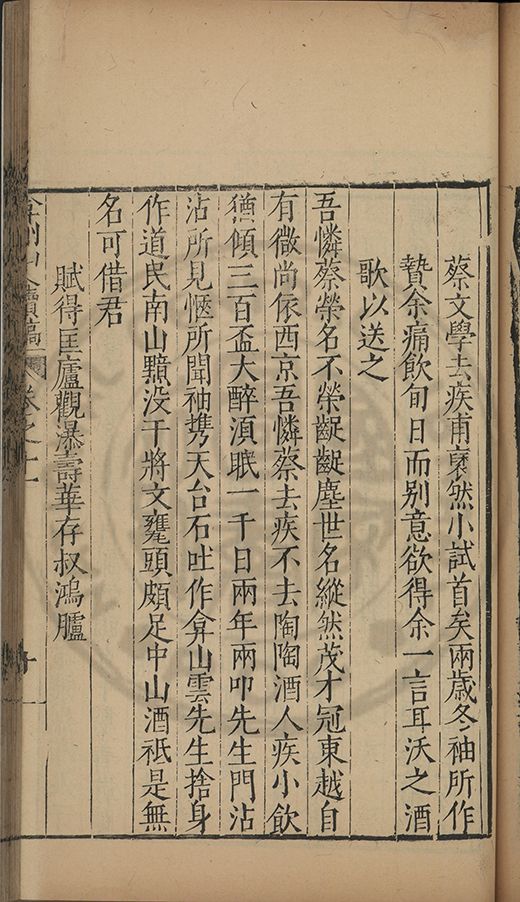 蔡文學去疾甫裒然小試首矣兩歲冬袖所作
贄余痛飲旬日而别意欲得余一言耳沃之酒
歌以送之
吾憐蔡榮名不榮齪齪塵世名縱然茂才冠東越自
有微尚依西京吾憐蔡去疾不去陶陶酒人疾小飲
猶傾三百盃大醉湏眠一千日兩年兩叩先生門沾
沾所見愜所聞袖携天台石吐作弇山雲先生捨身
作道民南山䫜没干將文甕頭頗足中山酒祗是無
名可借君
賦得匡廬觀瀑壽華存叔鴻臚
弇州山人續稿 卷之十一